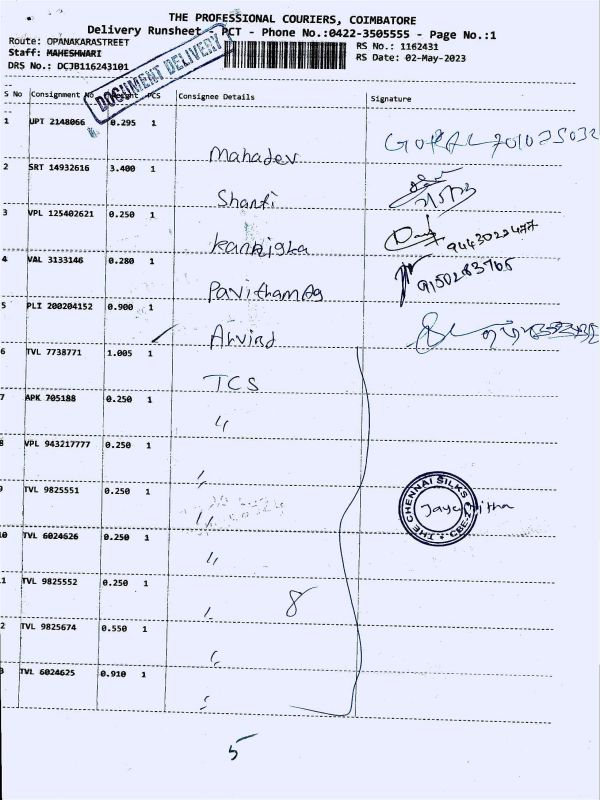 THE PROFESSIONAL COURIERS, COIMBATORE
Delivery Runsheet - PCT - Phone No.:0422-3505555 - Page No.:1
Route: OPANAKARASTREET
RS No.: 1162431
Staff: MAHESHWARI
RS Date: 02-May-2023
DRS No.: DCJB116243101
DOCUMENT DELIVERY
S No Consignment No PCS Consignee Details Signature
1 UPT 2148066 0.295 1
Mahadev
2 SRT 14932616 3.400 1
Shanti
2/5/23
3 VPL 125402621 0.250 1
Kanniska
9443022477
4 VAL 3133146 0.280 1
9150283765
5 PLI 200204152 0.900 1
Arvind
6 TVL 7738771 1.005 1
TCS
7 APK 705188 0.250 1
"
8 VPL 943217777 0.250 1
"
9 TVL 9825551 0.250 1
"
THE CHENNAI SILKS
10 TVL 6024626 0.250 1
"
11 TVL 9825552 0.250 1
8
12 TVL 9825674 0.550 1
13 TVL 6024625 0.910 1
5